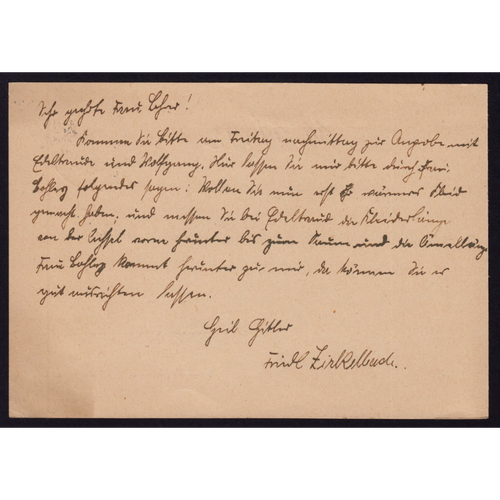 Sehr geehrte Frau Lehrer!
Kommen Sie bitte am Freitag nachmittag zur Anprobe mit
Edeltraude und Wolfgang. Nur lassen Sie mir bitte durch Frau
folgendes sagen: Wollen Sie nun erst ein wärmeres Kleid
gemacht haben, und messen Sie bei Edeltraud die Kleiderlänge
von der Achsel vorn herunter bis zum Saum und die Ärmellänge
Frau kommt herunter zu mir, da können Sie es
gut ausrichten lassen.
Heil Hitler
Friedl Zirkelbach.